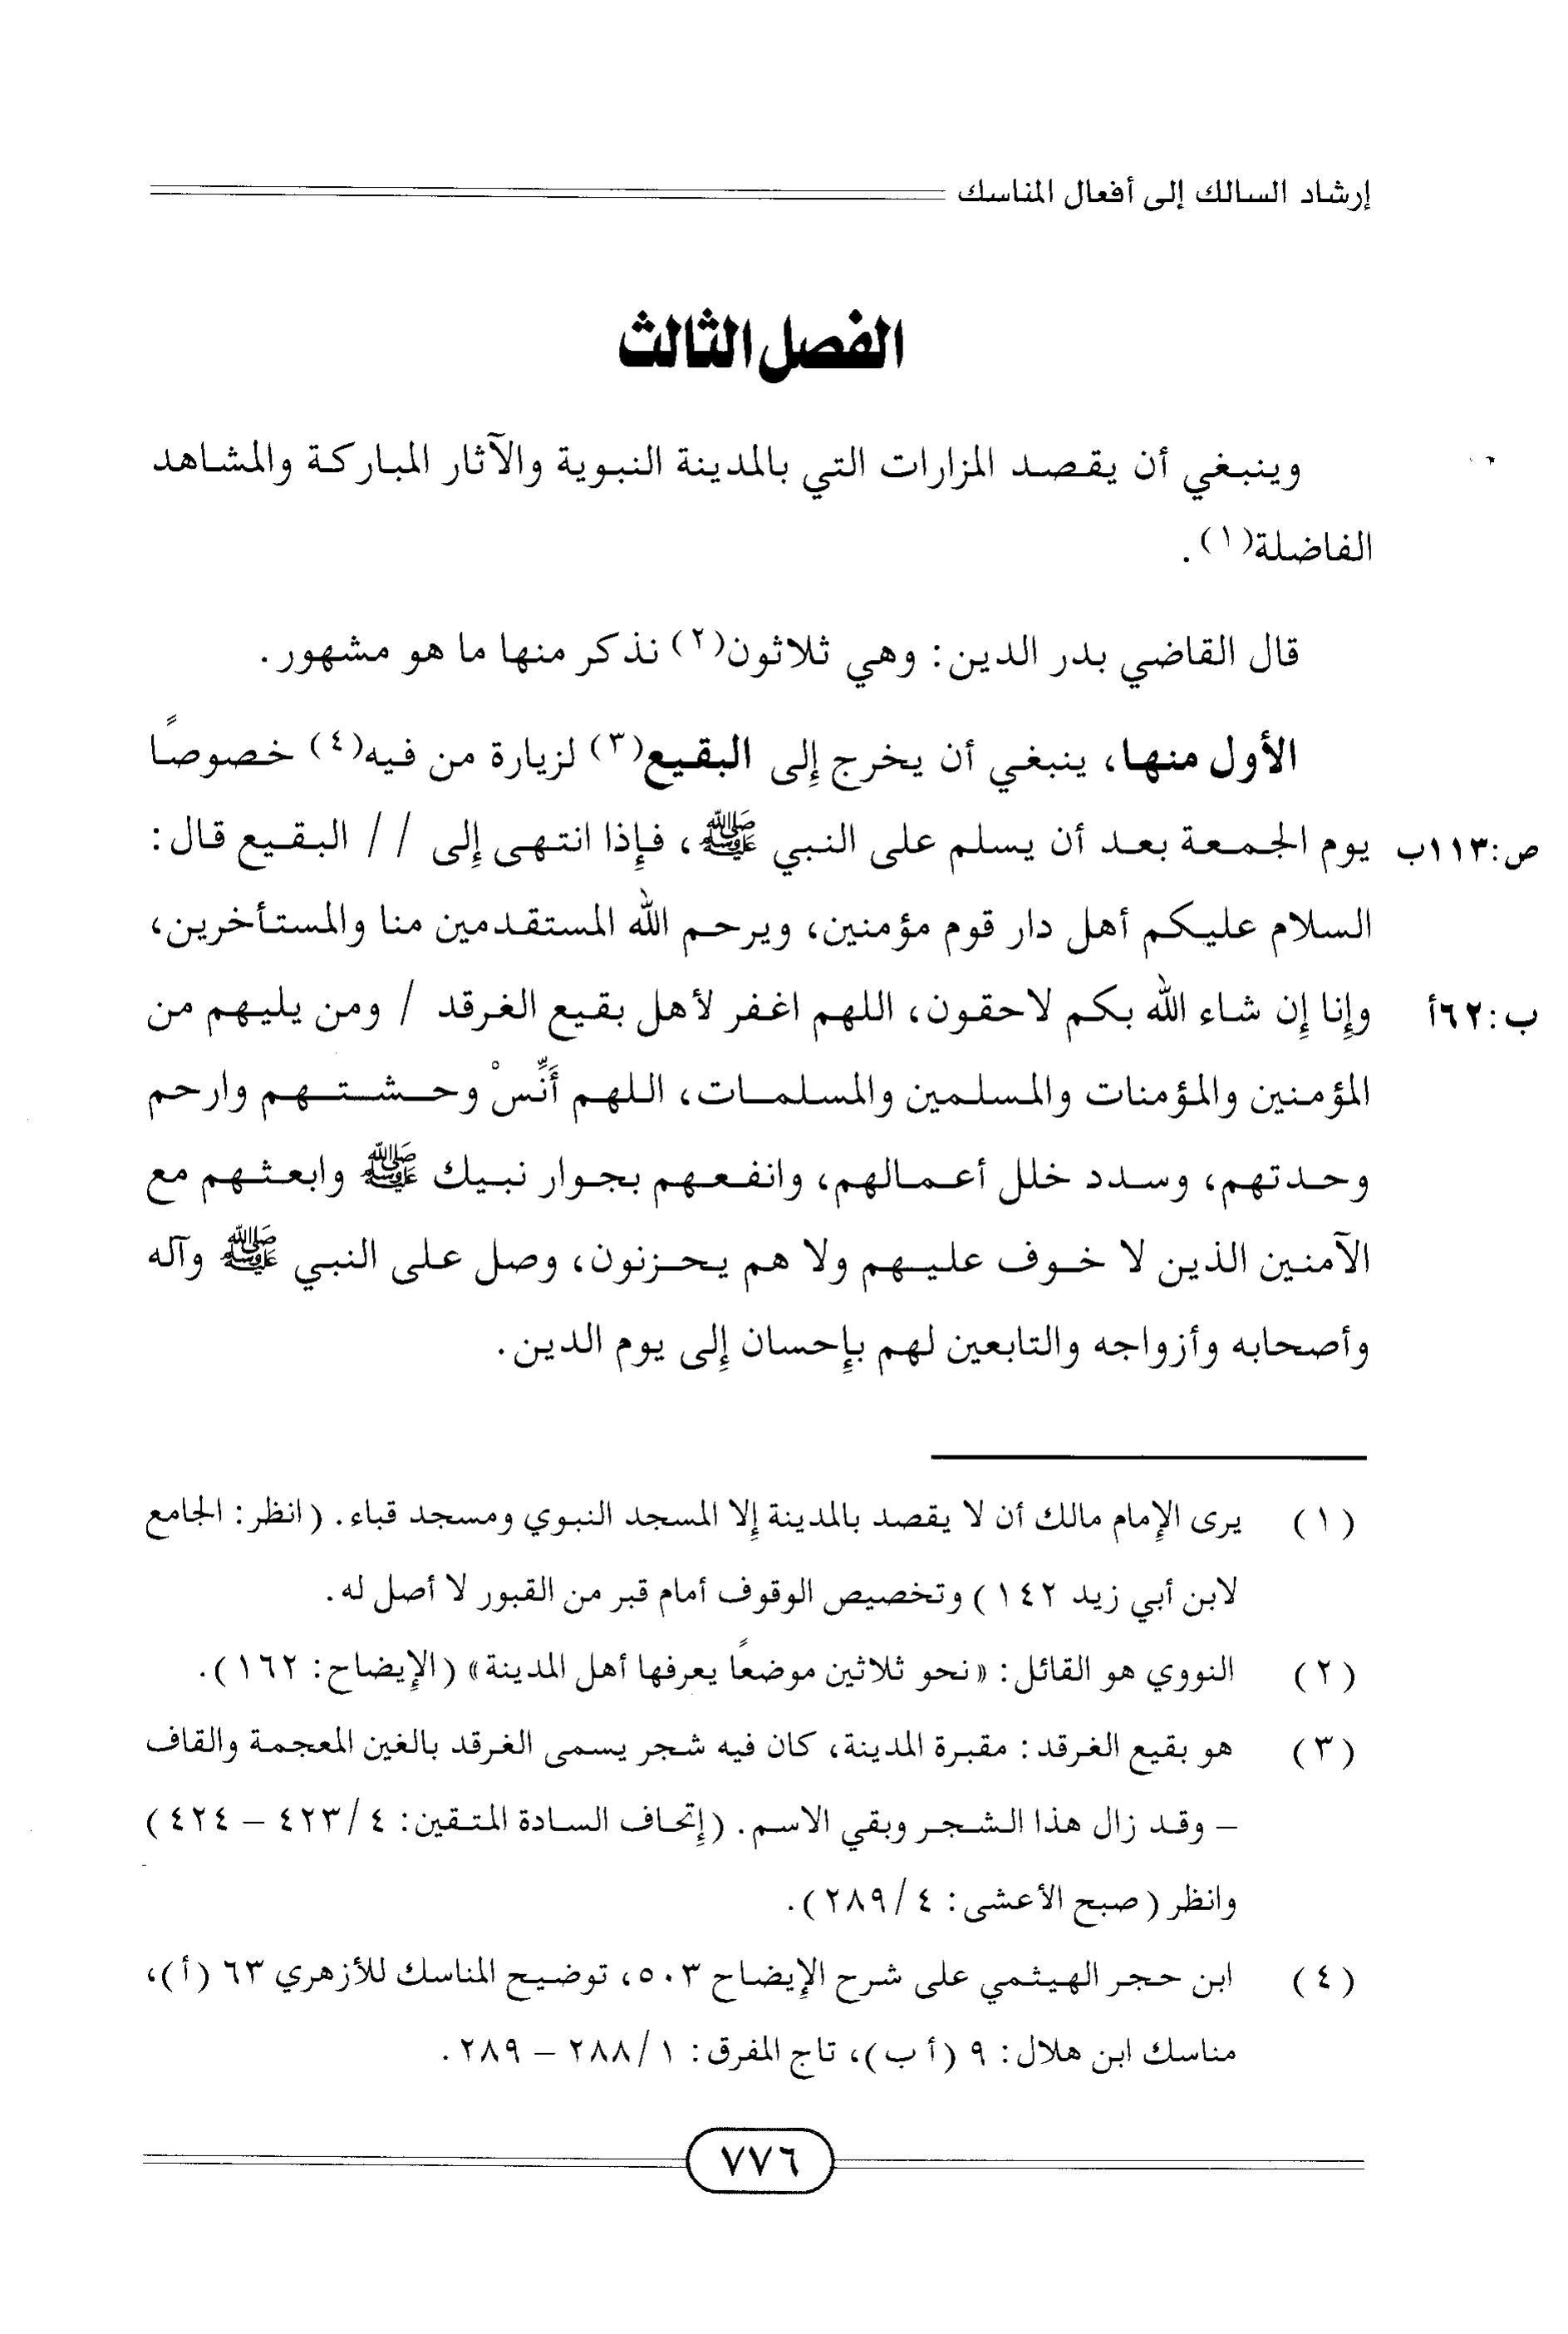 إرشاد السالك إلى أفعال المناسك
الفصل الثالث
وينبغي أن يقصد المزارات التي بالمدينة النبوية والآثار المباركة والمشاهد
الفاضلة(١).
قال القاضي بدر الدين: وهي ثلاثون(٢) نذكر منها ما هو مشهور.
الأول منها، ينبغي أن يخرج إلى البقيع(٣) لزيارة من فيه(٤) خصوصًا
ص:١١٣ب يوم الجمعة بعد أن يسلم على النبي ﷺ، فإذا انتهى إلى // البقيع قال:
السلام عليكم أهل دار قوم مؤمنين، ويرحم الله المستقدمين منا والمستأخرين،
ب:٦٢أ وإنا إن شاء الله بكم لاحقون، اللهم اغفر لأهل بقيع الغرقد / ومن يليهم من
المؤمنين والمؤمنات والمسلمين والمسلمات، اللهم أَنِّسْ وحشتهم وارحم
وحدتهم، وسدد خلل أعمالهم، وانفعهم بجوار نبيك ﷺ وابعثهم مع
الآمنين الذين لا خوف عليهم ولا هم يحزنون، وصل على النبي ﷺ وآله
وأصحابه وأزواجه والتابعين لهم بإحسان إلى يوم الدين.
(١) يرى الإمام مالك أن لا يقصد بالمدينة إلا المسجد النبوي ومسجد قباء. (انظر: الجامع
لابن أبي زيد ١٤٢) وتخصيص الوقوف أمام قبر من القبور لا أصل له.
(٢) النووي هو القائل: «نحو ثلاثين موضعًا يعرفها أهل المدينة» (الإيضاح: ١٦٢).
(٣) هو بقيع الغرقد: مقبرة المدينة، كان فيه شجر يسمى الغرقد بالغين المعجمة والقاف
– وقد زال هذا الشجر وبقي الاسم. (إتحاف السادة المتقين: ٤/ ٤٢٣ – ٤٢٤)
وانظر (صبح الأعشى: ٤/ ٢٨٩).
(٤) ابن حجر الهيثمي على شرح الإيضاح ٥٠٣، توضيح المناسك للأزهري ٦٣ (أ)،
مناسك ابن هلال: ٩ (أ ب)، تاج المفرق: ١/ ٢٨٨ – ٢٨٩.
٧٧٦